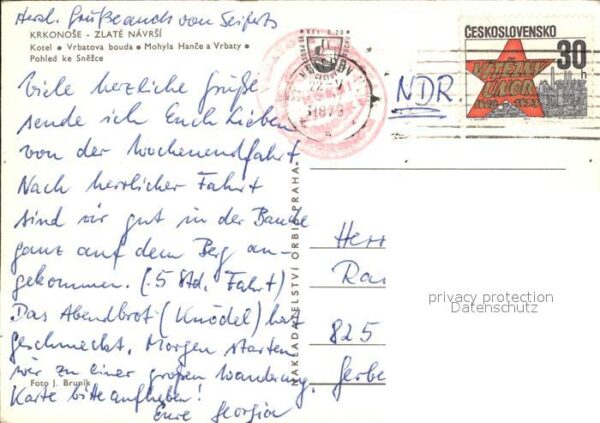 Herzl. Grüße auch von Seiferts
KRKONOŠE - ZLATÉ NÁVRŠÍ
Kotel • Vrbatova bouda • Mohyla Hanče a Vrbaty •
Pohled ke Sněžce
Viele herzliche Grüße
sende ich Euch Lieben
von der Wochenendfahrt
Nach herrlicher Fahrt
sind wir gut in der Baude
ganz auf dem Berg an-
gekommen. (5 Std. Fahrt)
Das Abendbrot (Knödel) hat
geschmeckt. Morgen starten
wir zu einer großen Wanderung.
Foto J. Bruník
Karte bitte aufheben!
Eure Georgia
NAKLADATELSTVÍ ORBIS, PRAHA
22. V.
1973
ČESKOSLOVENSKO
30 h
VÍTĚZNÝ
ÚNOR
1948 1973
NDR.
Herr
825
privacy protection
Datenschutz